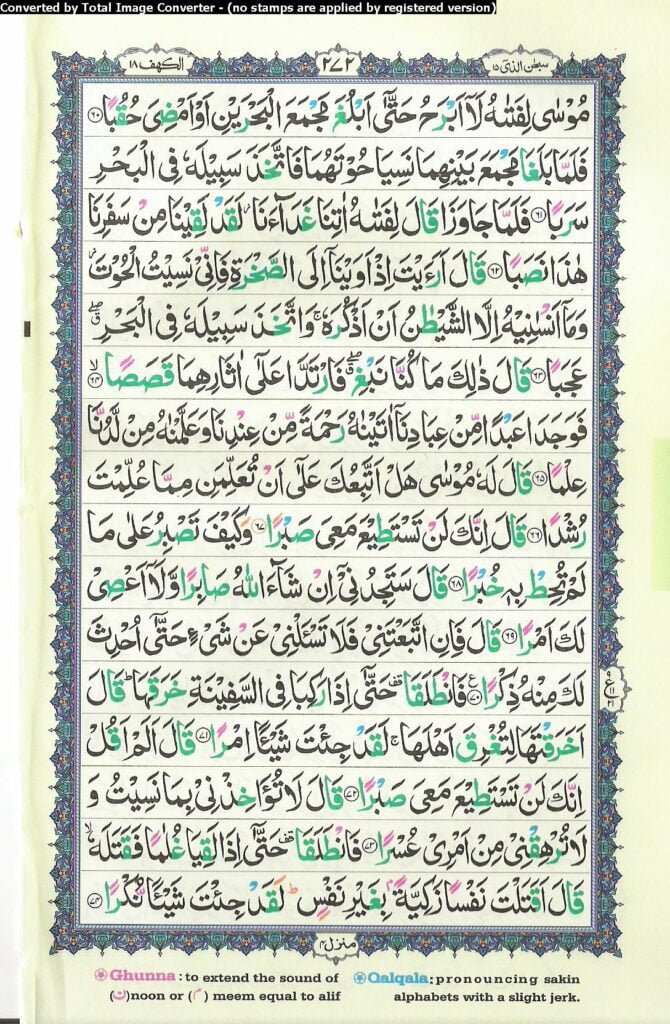 Converted by Total Image Converter - (no stamps are applied by registered version)
سبحٰن الذی ۱۵
۲۷۲
الکہف ۱۸
مُوْسٰى لِفَتٰىهُ لَاۤ اَبْرَحُ حَتّٰۤى اَبْلُغَ مَجْمَعَ الْبَحْرَیْنِ اَوْ اَمْضِیَ حُقُبًا ۶۰
فَلَمَّا بَلَغَا مَجْمَعَ بَیْنِهِمَا نَسِیَا حُوْتَهُمَا فَاتَّخَذَ سَبِیْلَهٗ فِی الْبَحْرِ
سَرَبًا ۶۱ فَلَمَّا جَاوَزَا قَالَ لِفَتٰىهُ اٰتِنَا غَدَآءَنَا ؗ لَقَدْ لَقِیْنَا مِنْ سَفَرِنَا
هٰذَا نَصَبًا ۶۲ قَالَ اَرَءَیْتَ اِذْ اَوَیْنَاۤ اِلَى الصَّخْرَةِ فَاِنِّیْ نَسِیْتُ الْحُوْتَ ؗ
وَ مَاۤ اَنْسٰىنِیْهُ اِلَّا الشَّیْطٰنُ اَنْ اَذْكُرَهٗ ۚ وَ اتَّخَذَ سَبِیْلَهٗ فِی الْبَحْرِ ۖۗ
عَجَبًا ۶۳ قَالَ ذٰلِكَ مَا كُنَّا نَبْغِ ۖۗ فَارْتَدَّا عَلٰۤى اٰثَارِهِمَا قَصَصًا ۙ ۶۴
فَوَجَدَا عَبْدًا مِّنْ عِبَادِنَاۤ اٰتَیْنٰهُ رَحْمَةً مِّنْ عِنْدِنَا وَ عَلَّمْنٰهُ مِنْ لَّدُنَّا
عِلْمًا ۶۵ قَالَ لَهٗ مُوْسٰى هَلْ اَتَّبِعُكَ عَلٰۤى اَنْ تُعَلِّمَنِ مِمَّا عُلِّمْتَ
رُشْدًا ۶۶ قَالَ اِنَّكَ لَنْ تَسْتَطِیْعَ مَعِیَ صَبْرًا ۶۷ وَ كَیْفَ تَصْبِرُ عَلٰى مَا
لَمْ تُحِطْ بِهٖ خُبْرًا ۶۸ قَالَ سَتَجِدُنِیْۤ اِنْ شَآءَ اللّٰهُ صَابِرًا وَّ لَاۤ اَعْصِیْ
لَكَ اَمْرًا ۶۹ قَالَ فَاِنِ اتَّبَعْتَنِیْ فَلَا تَسْـَٔلْنِیْ عَنْ شَیْءٍ حَتّٰۤى اُحْدِثَ
لَكَ مِنْهُ ذِكْرًا ۷۰ فَانْطَلَقَا ۥ قف حَتّٰۤى اِذَا رَكِبَا فِی السَّفِیْنَةِ خَرَقَهَا ؕ قَالَ
اَخَرَقْتَهَا لِتُغْرِقَ اَهْلَهَا ۚ لَقَدْ جِئْتَ شَیْـًٔا اِمْرًا ۷۱ قَالَ اَلَمْ اَقُلْ
اِنَّكَ لَنْ تَسْتَطِیْعَ مَعِیَ صَبْرًا ۷۲ قَالَ لَا تُؤَاخِذْنِیْ بِمَا نَسِیْتُ وَ
لَا تُرْهِقْنِیْ مِنْ اَمْرِیْ عُسْرًا ۷۳ فَانْطَلَقَا قف حَتّٰۤى اِذَا لَقِیَا غُلٰمًا فَقَتَلَهٗ ۙ
قَالَ اَقَتَلْتَ نَفْسًا زَكِیَّةًۢ بِغَیْرِ نَفْسٍ ؕ لَقَدْ جِئْتَ شَیْـًٔا نُّكْرًا ۷۴
۹ ع ۱۱ ۲۱
منزل ۴
Ghunna : to extend the sound of
(ن) noon or (م) meem equal to alif
Qalqala: pronouncing sakin
alphabets with a slight jerk.